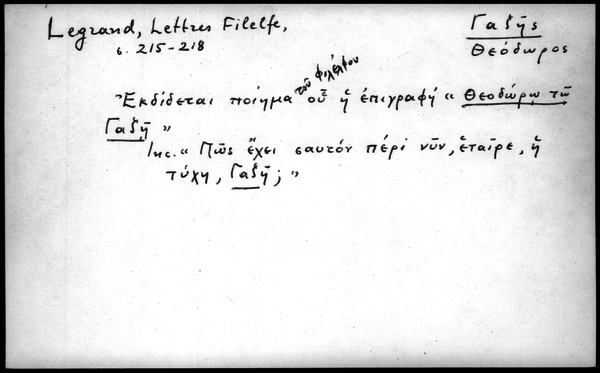 Legrand, Lettres Filelfe,
σ. 215-218
Γαζῆς
Θεόδωρος
τοῦ Φιλέλφου
Ἐκδίδεται ποίημα οὗ ἡ ἐπιγραφή « Θεοδώρῳ τῷ
Γαζῇ »
Inc. « Πῶς ἔχει ἑαυτόν πέρι νῦν, ἑταῖρε, ἡ
τύχη, Γαζῆ; »